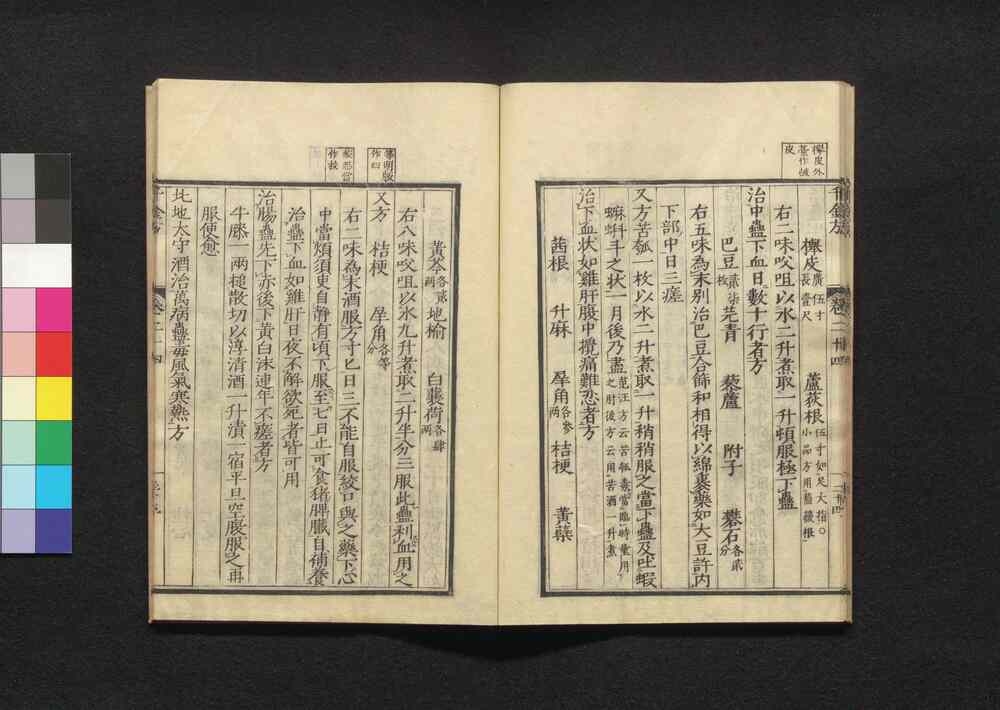 櫸皮外
臺作梜
皮
櫸皮廣伍寸長壹尺　蘆荻根伍寸如足大指○小品方用薔薇根
右二味㕮咀以水二升煮取一升頓服極下蠱
治中蠱下血日數十行者方
巴豆貳柒枚　芫青　藜蘆　附子　礬石各貳分
右五味為末別治巴豆合篩和相得以綿裹藥如大豆許内
下部中日三瘥
又方苦瓠一枚以水二升煮取一升稍稍服之當下蠱及吐蝦
蟆蝌斗之狀一月後乃盡范汪方云苦瓠毒當臨時量用之肘後方云用苦酒一升煮
治下血狀如雞肝腹中攪痛難忍者方
茜根　升麻　犀角各參兩　桔梗　黃蘗
黃芩各貳兩　地榆　白蘘荷各肆兩
右八味㕮咀以水九升煮取二升半分三服此蠱利血用之
又方　桔梗　犀角各等分
右二味為末酒服方寸匕日三不能自服絞口與之藥下心
中當煩須臾自靜有頃下服至七日止可食豬脾臟自補養
治蠱下血如雞肝日夜不解欲死者皆可用
治腸蠱先下赤後下黃白沫連年不瘥者方
牛膝一兩槌散切以淳清酒一升漬一宿平旦空腹服之再
服便愈
北地太守酒治萬病蠱毒風氣寒熱方
千金方
卷二十四